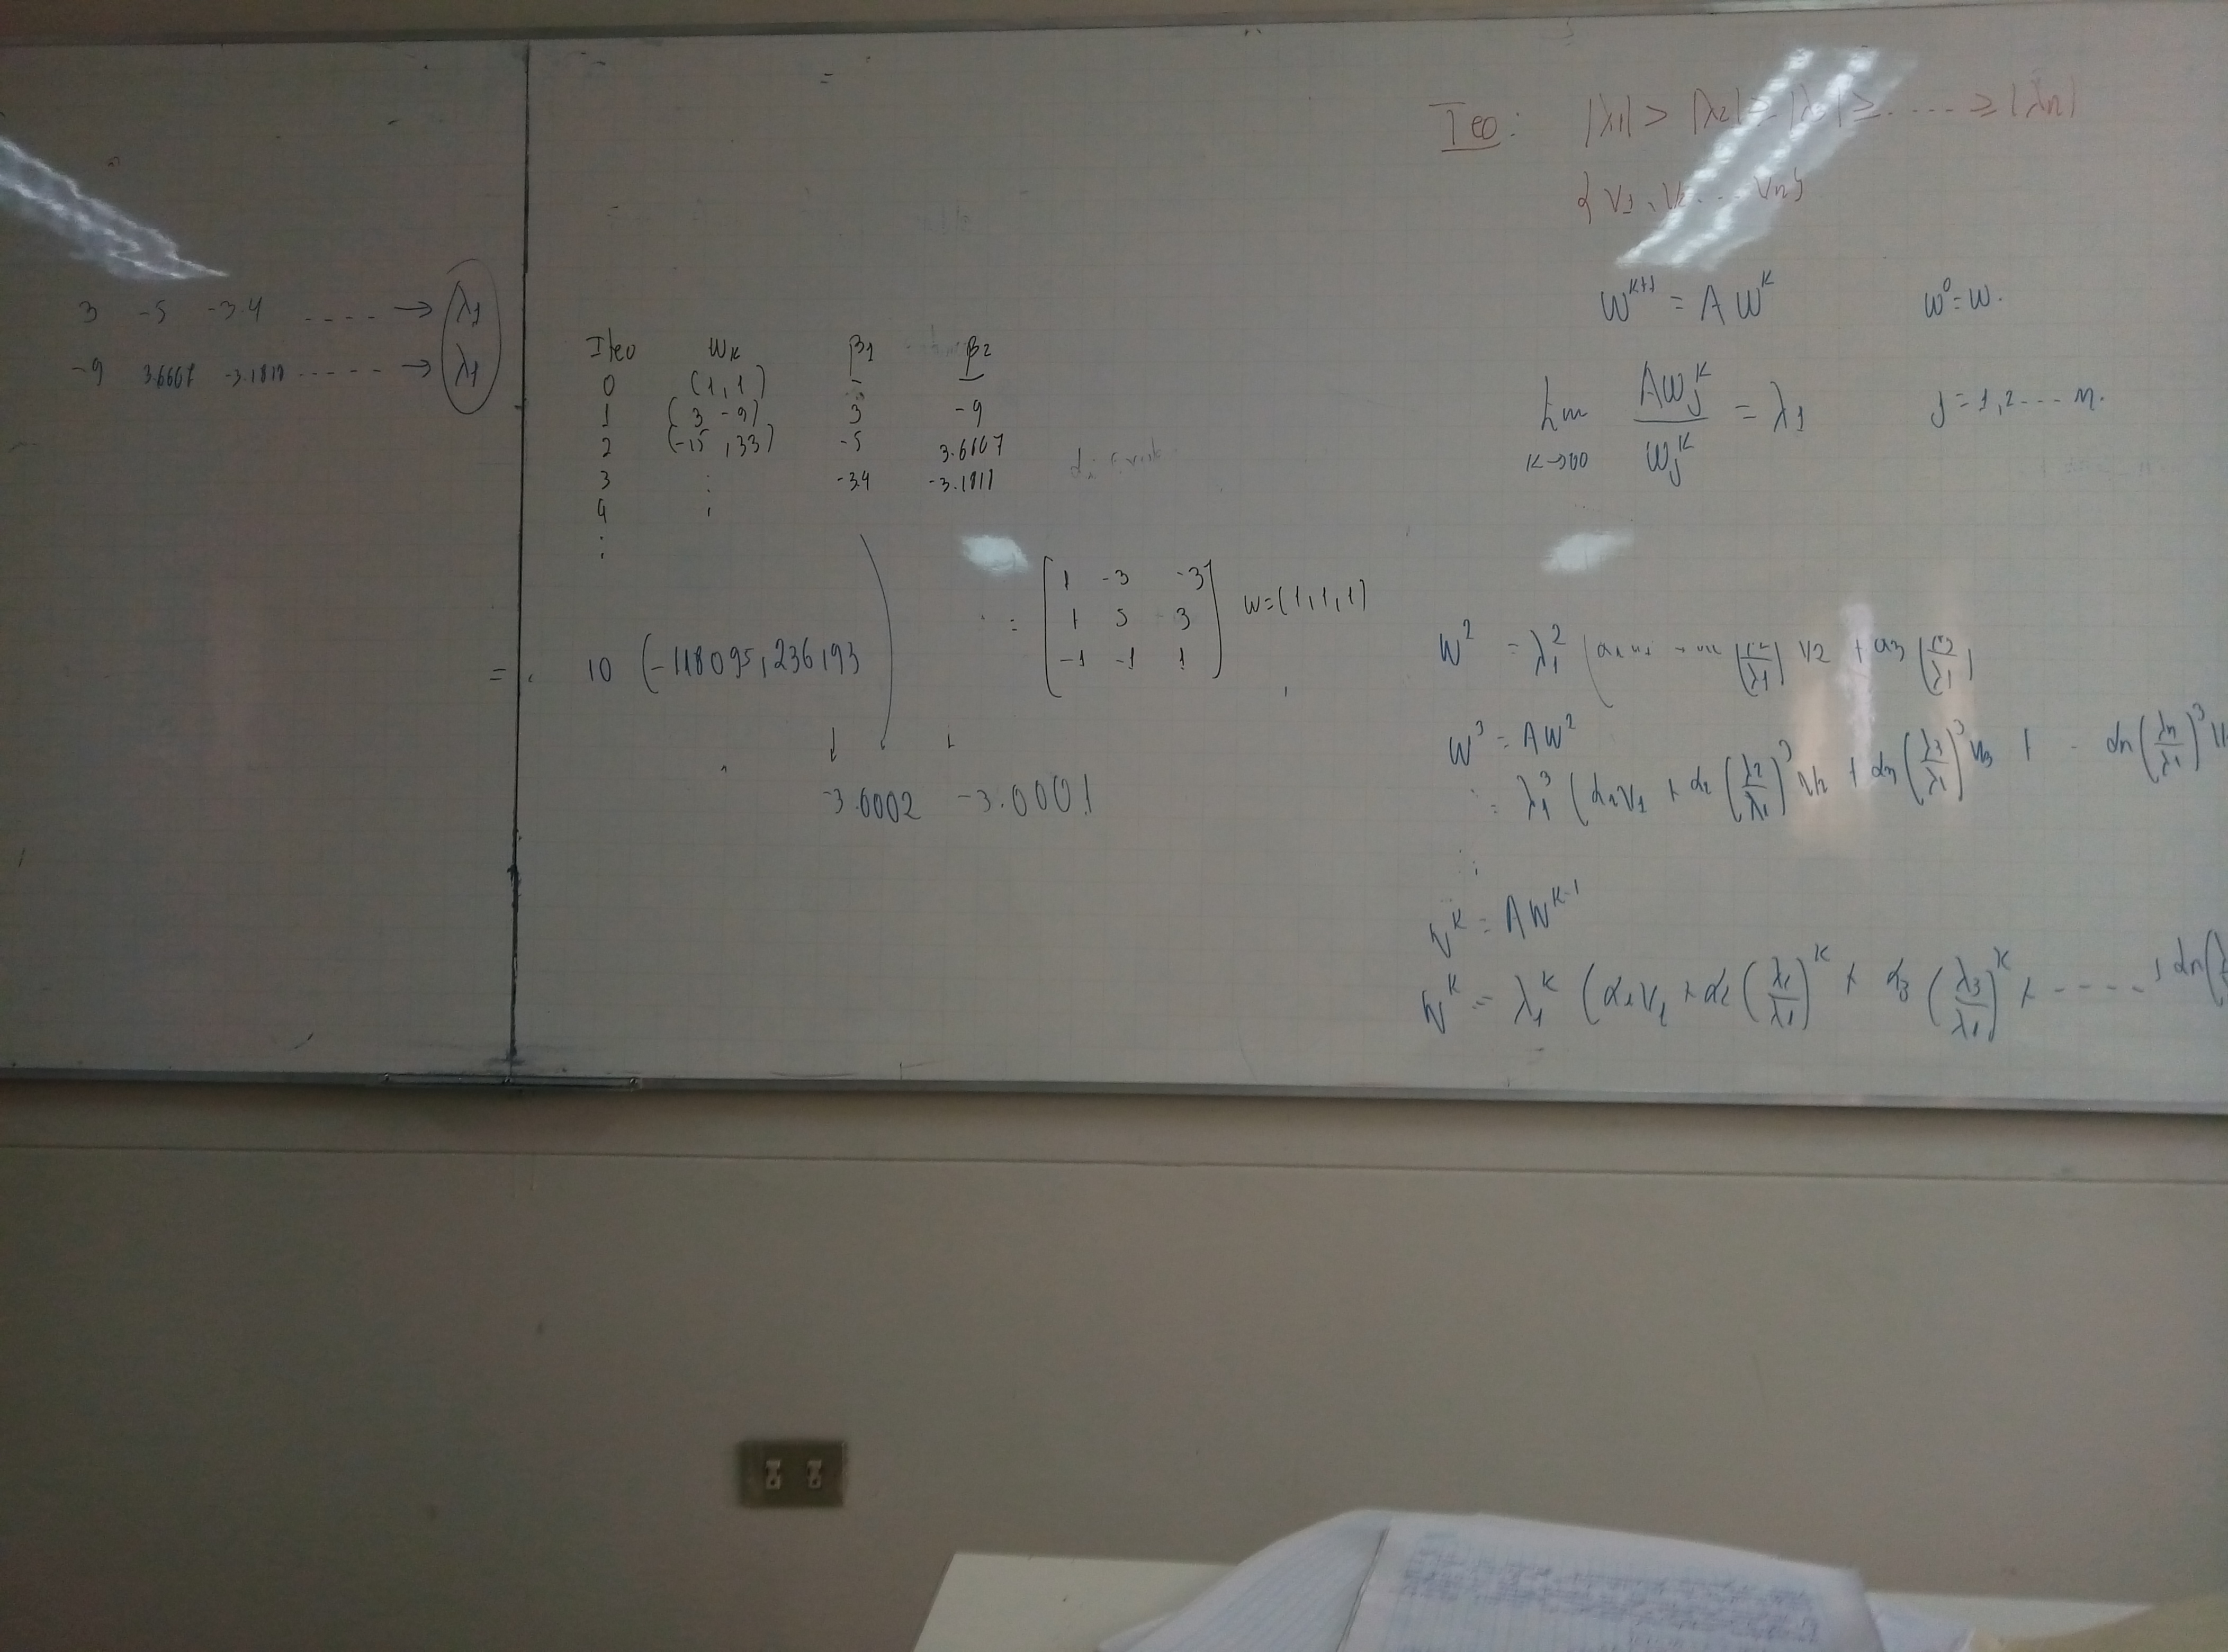 3 -5 -3.4 .... → λ1
-9 3.6667 -3.1818 ..... → λ1
Iteo Wk β1 β2
0 (1,1) - -
1 (3 -9) 3 -9
2 (-15 ,33) -5 3.6667
3 : -3.4 -3.1818
4 :
:
= [ 1 -3 -3
1 5 3
-1 -1 1 ] W=(1,1,1)
10 (-118095,236193
-3.0002 -3.0001
Teo: |λ1| > |λ2| ≥ |λ3| ≥ ..... ≥ |λn|
{ V1, V2 ... Vn}
W^{k+1} = A W^k W^0 = W.
Lim_{k→∞} AWj^k / Wj^k = λ1 J = 1,2 .... n.
W^2 = λ1^2 ( V2 + α3
W^3 = AW^2
= λ1^3 (α1V1 + α2 (λ2/λ1)^3 V2 + α3 (λ3/λ1)^3 V3 + - αn (λn/λ1)^3
W^k = AW^{k-1}
W^k = λ1^k (α1V1 + α2 (λ2/λ1)^k + α3 (λ3/λ1)^k + ..... , αn(